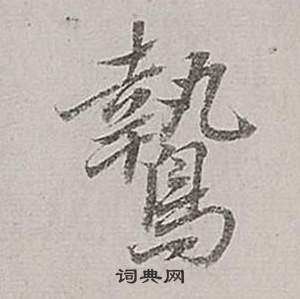 鷙
词典网